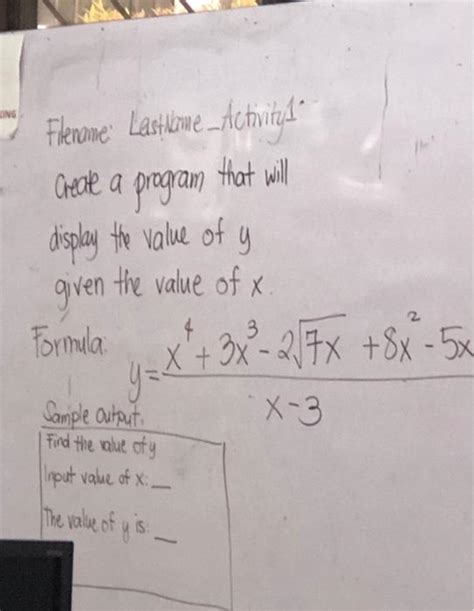 Filename: LastName_Activity1
Create a program that will
display the value of y
given the value of x.
Formula:
y = x⁴ + 3x³ - 2√7x + 8x² - 5x
x - 3
Sample output:
Find the value of y
Input value of x: __
The value of y is: __